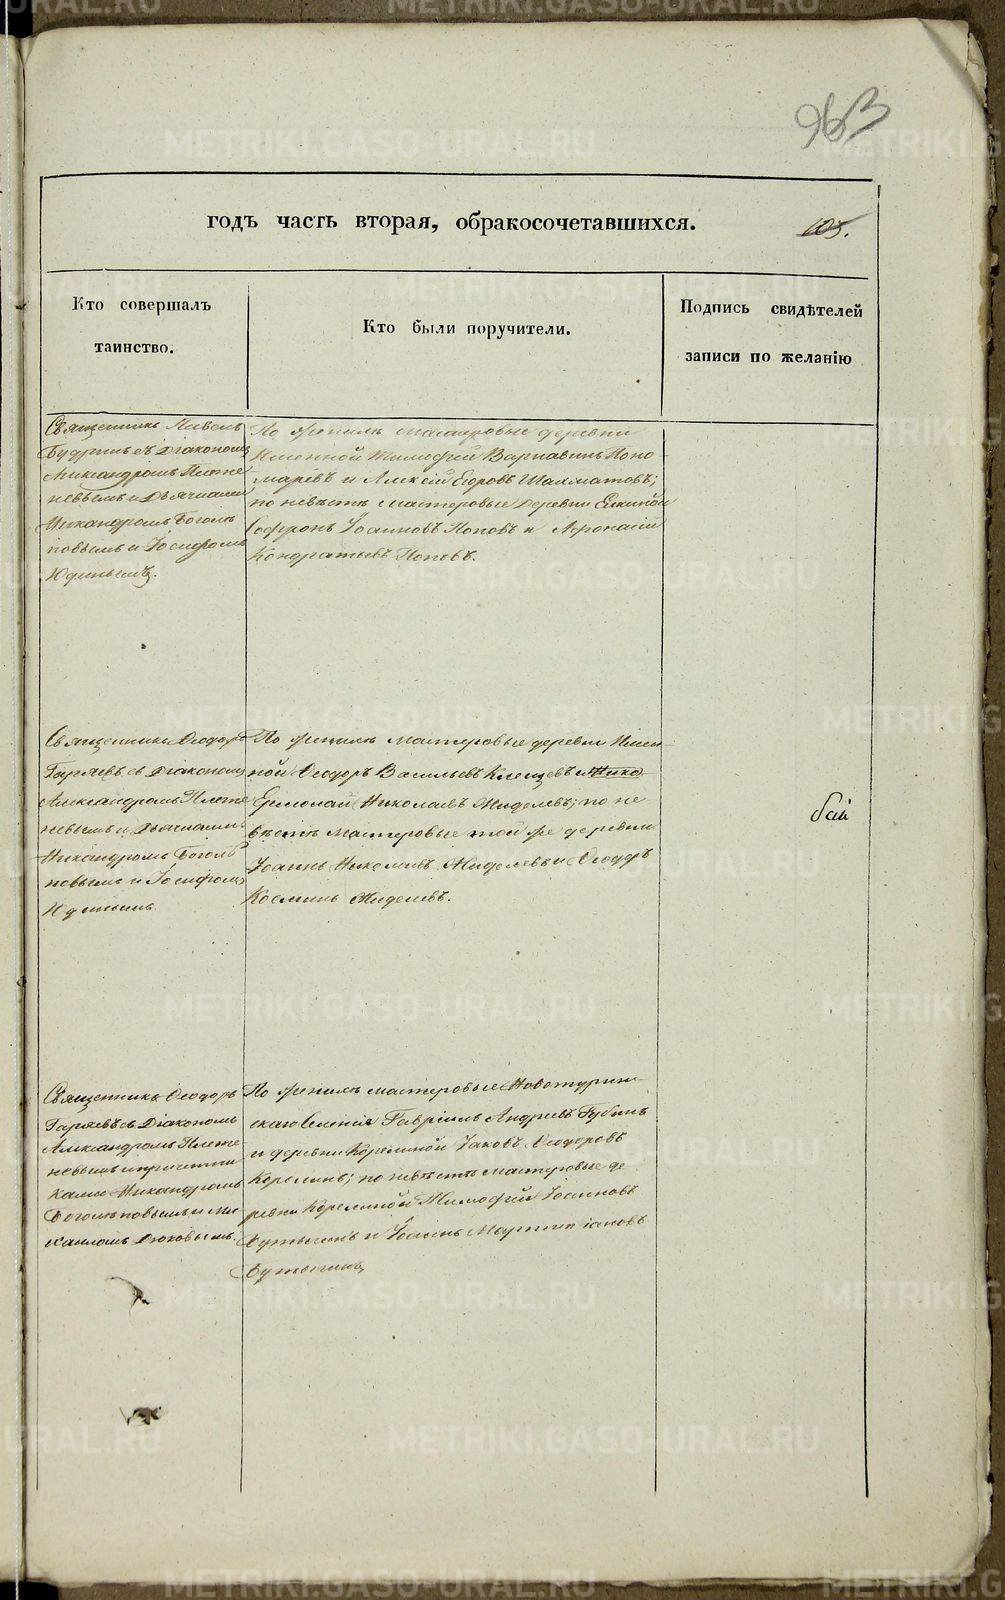 963
годъ часть вторая, обракосочетавшихся.
105.
Кто совершалъ
таинство.
Кто были поручители.
Подпись свидѣтелей
записи по желанію
Священникъ Павелъ
Будринъ съ Діакономъ
Александромъ Плете
невымъ и Дьячками
Никандромъ Боголѣ
повымъ и Іосифомъ
Юдинымъ.
По женихѣ мастеровые деревни
Именной Тимофей Варнавинъ Поно
маревъ и Алексій Егоровъ Шахматовъ;
по невѣстѣ мастеровые деревни Елкиной
Софронъ Іоанновъ Поповъ и Афонасій
Кондратьевъ Поповъ.
Священникъ Ѳеодоръ
Гаряевъ съ Діакономъ
Александромъ Плете
невымъ и Дьячками
Никандромъ Боголѣ
повымъ и Іосифомъ
Юдинымъ
По женихѣ мастеровые деревни Имен
ной Ѳеодоръ Васильевъ Клещевъ и Нико
Ермолай Николаевъ Жиделевъ; по не
вѣстѣ мастеровые той же деревни
Іоаннъ Николаевъ Жиделевъ и Ѳеодоръ
Косминъ Жиделевъ.
Священникъ Ѳеодоръ
Гаряевъ съ Діакономъ
Александромъ Плете
невымъ и причетни
ками Никандромъ
Боголѣповымъ и Ми
хаиломъ Дюковымъ.
По женихѣ мастеровые Новотурин
скаго селенія Гавріилъ Андреевъ Губинъ
и деревни Корелиной Іаковъ Ѳеодоровъ
Корелинъ; по невѣстѣ мастеровые де
ревни Корелиной Тимофей Іоанновъ
и Іоаннъ Мартиніановъ